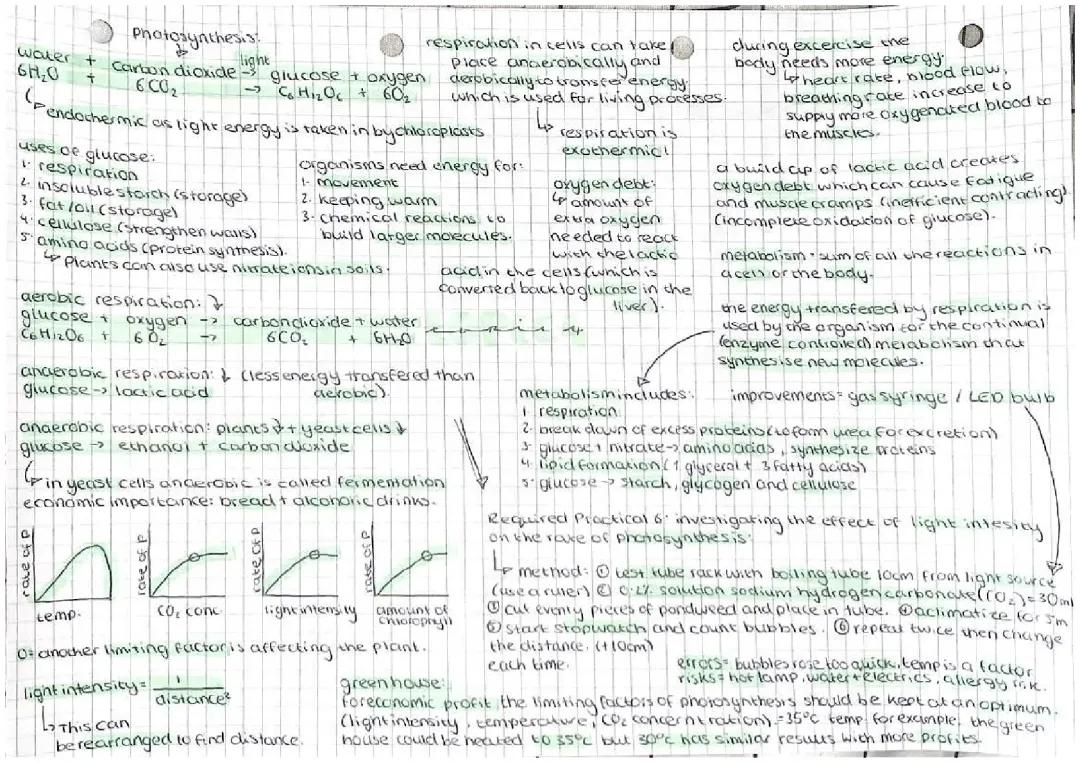 Photosynthesis:
water + carbon dioxide light -> glucose + oxygen
6H2O + 6CO2 -> C6H12O6 + 6O2
↳ endothermic as light energy is taken in by chloroplasts
uses of glucose:
1. respiration
2. insoluble starch (storage)
3. fat/oil (storage)
4. cellulose (strengthen walls)
5. amino acids (protein synthesis).
↳ Plants can also use nitrate ions in soils.
organisms need energy for:
1. movement
2. keeping warm
3. chemical reactions to
build larger molecules.
aerobic respiration: ↓
glucose + oxygen -> carbon dioxide + water
C6H12O6 + 6O2 -> 6CO2 + 6H2O
anaerobic respiration: ↓ (less energy transfered than
glucose -> lactic acid aerobic).
anaerobic respiration: plants ↓ + yeast cells ↓
glucose -> ethanol + carbon dioxide
↳ in yeast cells anaerobic is called fermentation
economic importance: bread + alcoholic drinks.
rate of P
temp.
rate of P
CO2 conc.
rate of P
light intensity
rate of P
amount of
chlorophyll
O= another limiting factor is affecting the plant.
light intensity = 1
distance²
↳ This can
be rearranged to find distance.
respiration in cells can take
place anaerobically and
aerobically to transfer energy
which is used for living processes.
↳ respiration is
exothermic!
oxygen debt:
↳ amount of
extra oxygen
needed to react
with the lactic
acid in the cells (which is
converted back to glucose in the
liver).
during excercise the
body needs more energy:
↳ heart rate, blood flow,
breathing rate increase to
supply more oxygenated blood to
the muscles.
a build up of lactic acid creates
oxygen debt which can cause fatigue
and muscle cramps (inefficient contracting).
(incomplete oxidation of glucose).
metabolism = sum of all the reactions in
a cell or the body.
the energy transfered by respiration is
used by the organism for the continual
(enzyme controlled) metabolism that
synthesise new molecules.
metabolism includes:
1. respiration
2. break down of excess proteins (to form urea for excretion)
3. glucose + nitrate -> amino acids, synthesize proteins
4. lipid formation (1 glycerol + 3 fatty acids)
5. glucose -> starch, glycogen and cellulose
improvements = gas syringe / LED bulb
Required Practical 6: investigating the effect of light intesity
on the rate of photosynthesis:
↳ method: ① test tube rack with boiling tube 10cm from light source
(use a ruler) ② 0.2% solution sodium hydrogen carbonate (CO2) = 30ml
③ cut evenly pieces of pondweed and place in tube. ④ aclimatize for 5m
⑤ start stopwatch and count bubbles. ⑥ repeat twice then change
the distance. (+10cm)
each time.
errors = bubbles rose too quick, temp is a factor
risks = hot lamp, water + electrics, allergy risk.
greenhouse:
for economic profit, the limiting factors of photosynthesis should be kept at an optimum.
(light intensity, temperature, CO2 concerntration) = 35°c temp. for example, the green
house could be heated to 35°c but 30°c has similar results with more profits.